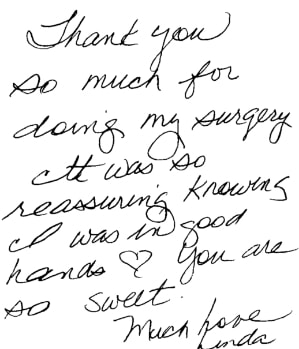 Thank you
so much for
doing my surgery
It was so
reassuring knowing
I was in good
hands ♡ You are
so sweet.
Much Love
Linda